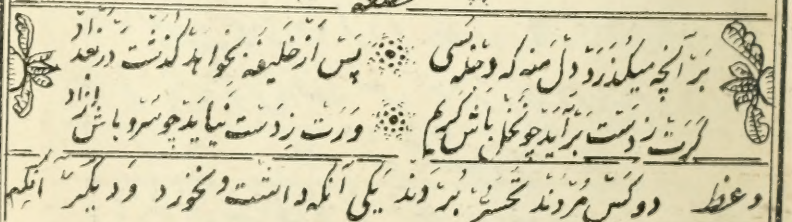 بر آنچه میگذرد دل منه که دجله بسی پس از خلیفه بخواهد گذشت در بغداد
گرت ز دست بر آید چو نخل باش کریم ورت ز دست نیاید چو سرو باش آزاد
وعظ دو کس مردند تحسر بردند یکی آنکه داشت و نخورد و دیگر آنکه